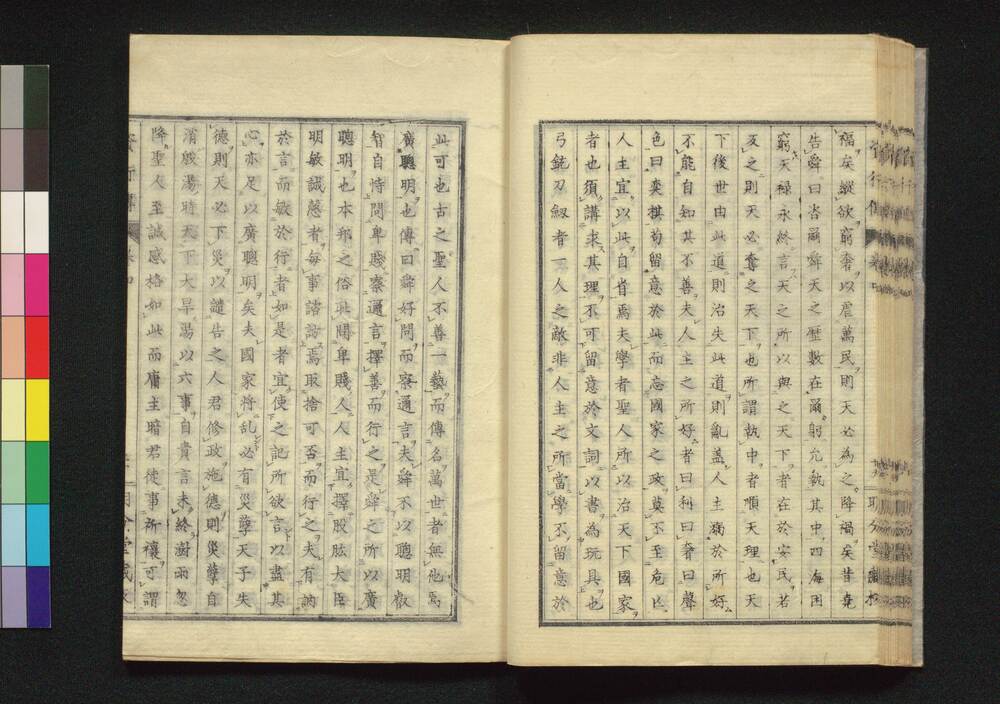 福矣縱欲窮奢以虐萬民則天必為之降禍矣昔堯
告舜曰咨爾舜天之歷數在爾躬允執其中四海困
窮天祿永終言天之所以與之天下者在於安民若
反之則天必奪之天下也所謂執中者順天理也天
下後世由此道則治失此道則亂盖人主溺於所好
不能自知其不善夫人主之所好者曰利曰奢曰聲
色曰奕棋苟留意於此而忘國家之政莫不至危亡
人主宜以此自省焉夫學者聖人所以治天下國家
者也須講求其理不可留意於文詞以書為玩具也
弓銃刀劔者一人之敵非人主之所當學不留意於
此可也古之聖人不善一藝而傳名萬世者無他焉
廣聰明也傳曰舜好問而察邇言夫舜不以聰明叡
智自恃問卑賤察邇言擇善而行之是舜之所以廣
聰明也本邦之俗耻問卑賤人人主宜擇股肱大臣
明敏誠愨者每事諮詢焉取捨可否而行之夫有訥
於言而敏於行者如是者宜使之記所欲言以盡其
心亦足以廣聰明矣夫國家將乱必有災孽天子失
德則天必下災以譴告之人君修政施德則災孽自
消殷湯時天下大旱湯以六事自責言未終澍雨忽
降聖人至誠感格如此而庸主暗君徒事祈禳可謂